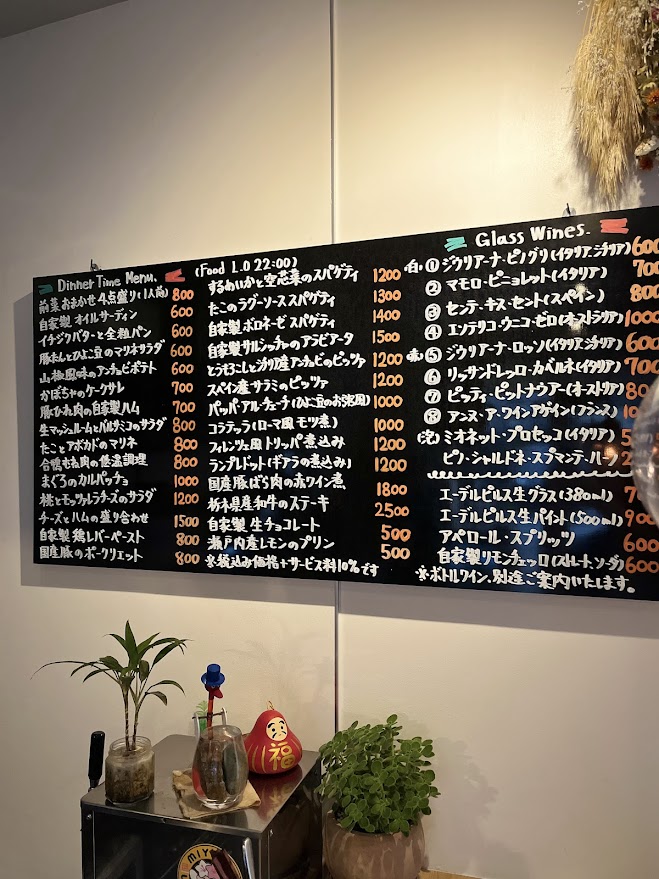 Dinner Time Menu.
前菜おまかせ4点盛り(1人前) 800
自家製 オイルサーディン 600
イチジクバターと全粒パン 600
豚ホルモンとひよこ豆のマリネサラダ 600
山椒風味のアンチョビポテト 600
かぼちゃのケークサレ 700
豚ひれ肉の自家製ハム 700
生マッシュルームとバルサミコのサラダ 800
たことアボカドのマリネ 800
合鴨もも肉の低温調理 800
まぐろのカルパッチョ 1000
桃とモッツァレラチーズのサラダ 1200
チーズとハムの盛り合わせ 1500
自家製 鶏レバーペースト 800
国産豚のポークリエット 800
(Food L.O 22:00)
するめいかと空芯菜のスパゲティ 1200
たこのラグーソーススパゲティ 1300
自家製ボロネーゼ スパゲティ 1400
自家製サルシッチャのアラビアータ 1500
とうもろこしとシチリア産アンチョビのピッツァ 1200
スペイン産サラミのピッツァ 1200
パッパ・アル・チェーチ(ひよこ豆のお粥風) 1000
コラテッラ(ローマ風モツ煮) 1000
フィレンツェ風トリッパ煮込み 1200
ランプレドット(ギアラの煮込み) 1200
国産豚ばら肉の赤ワイン煮 1800
栃木県産和牛のステーキ 2500
自家製 生チョコレート 500
瀬戸内産レモンのプリン 500
※税込み価格+サービス料10%です
Glass Wines.
(白) ① ジウリアーナ・ピノグリ(イタリア・シチリア) 600
② マモロ・ピニョレット(イタリア) 700
③ センテ・キス・セント(スペイン) 800
④ エンテリコ・ウニコ・ゼロ(オーストラリア) 1000
(赤) ⑤ ジウリアーナ・ロッソ(イタリア・シチリア) 600
⑥ リッサンドレッロ・カベルネ(イタリア) 700
⑦ ピッティ・ピットナウアー(オーストリア)
⑧ アンヌ・ア・ワインアゲイン(フランス)
(泡) ミオネット・プロセッコ(イタリア)
ピノ・シャルドネ・スプマンテ・ハーフ
エーデルピルス生グラス(380ml)
エーデルピルス生パイント(500ml)
アペロール・スプリッツ 600
自家製リモンチェッロ(ストレート、ソーダ) 600
※ボトルワイン、別途ご案内いたします。
福